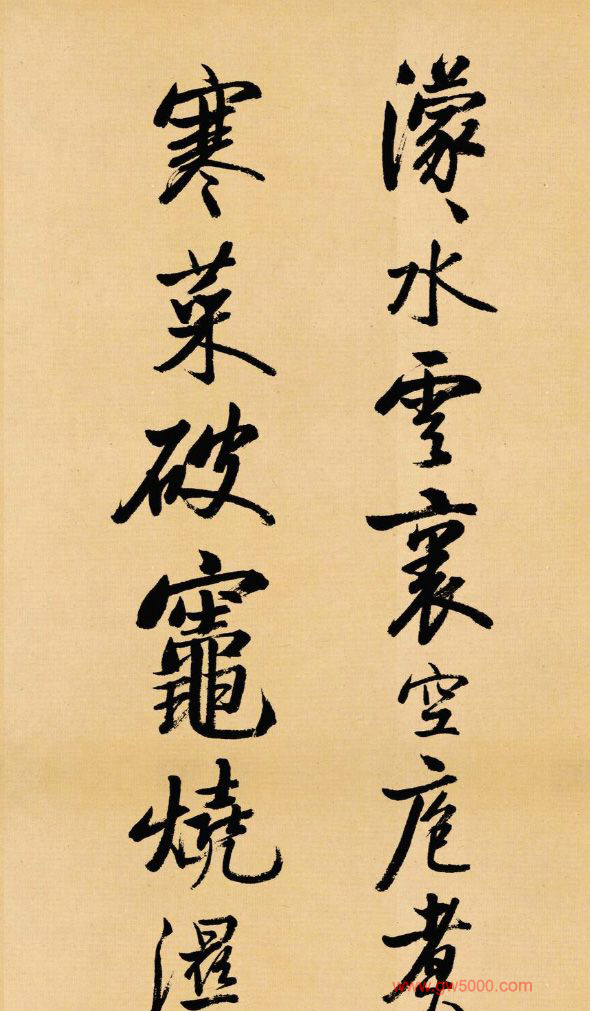 濛〻水雲裏空庖煮
寒菜破竈燒濕
www.gw5000.com